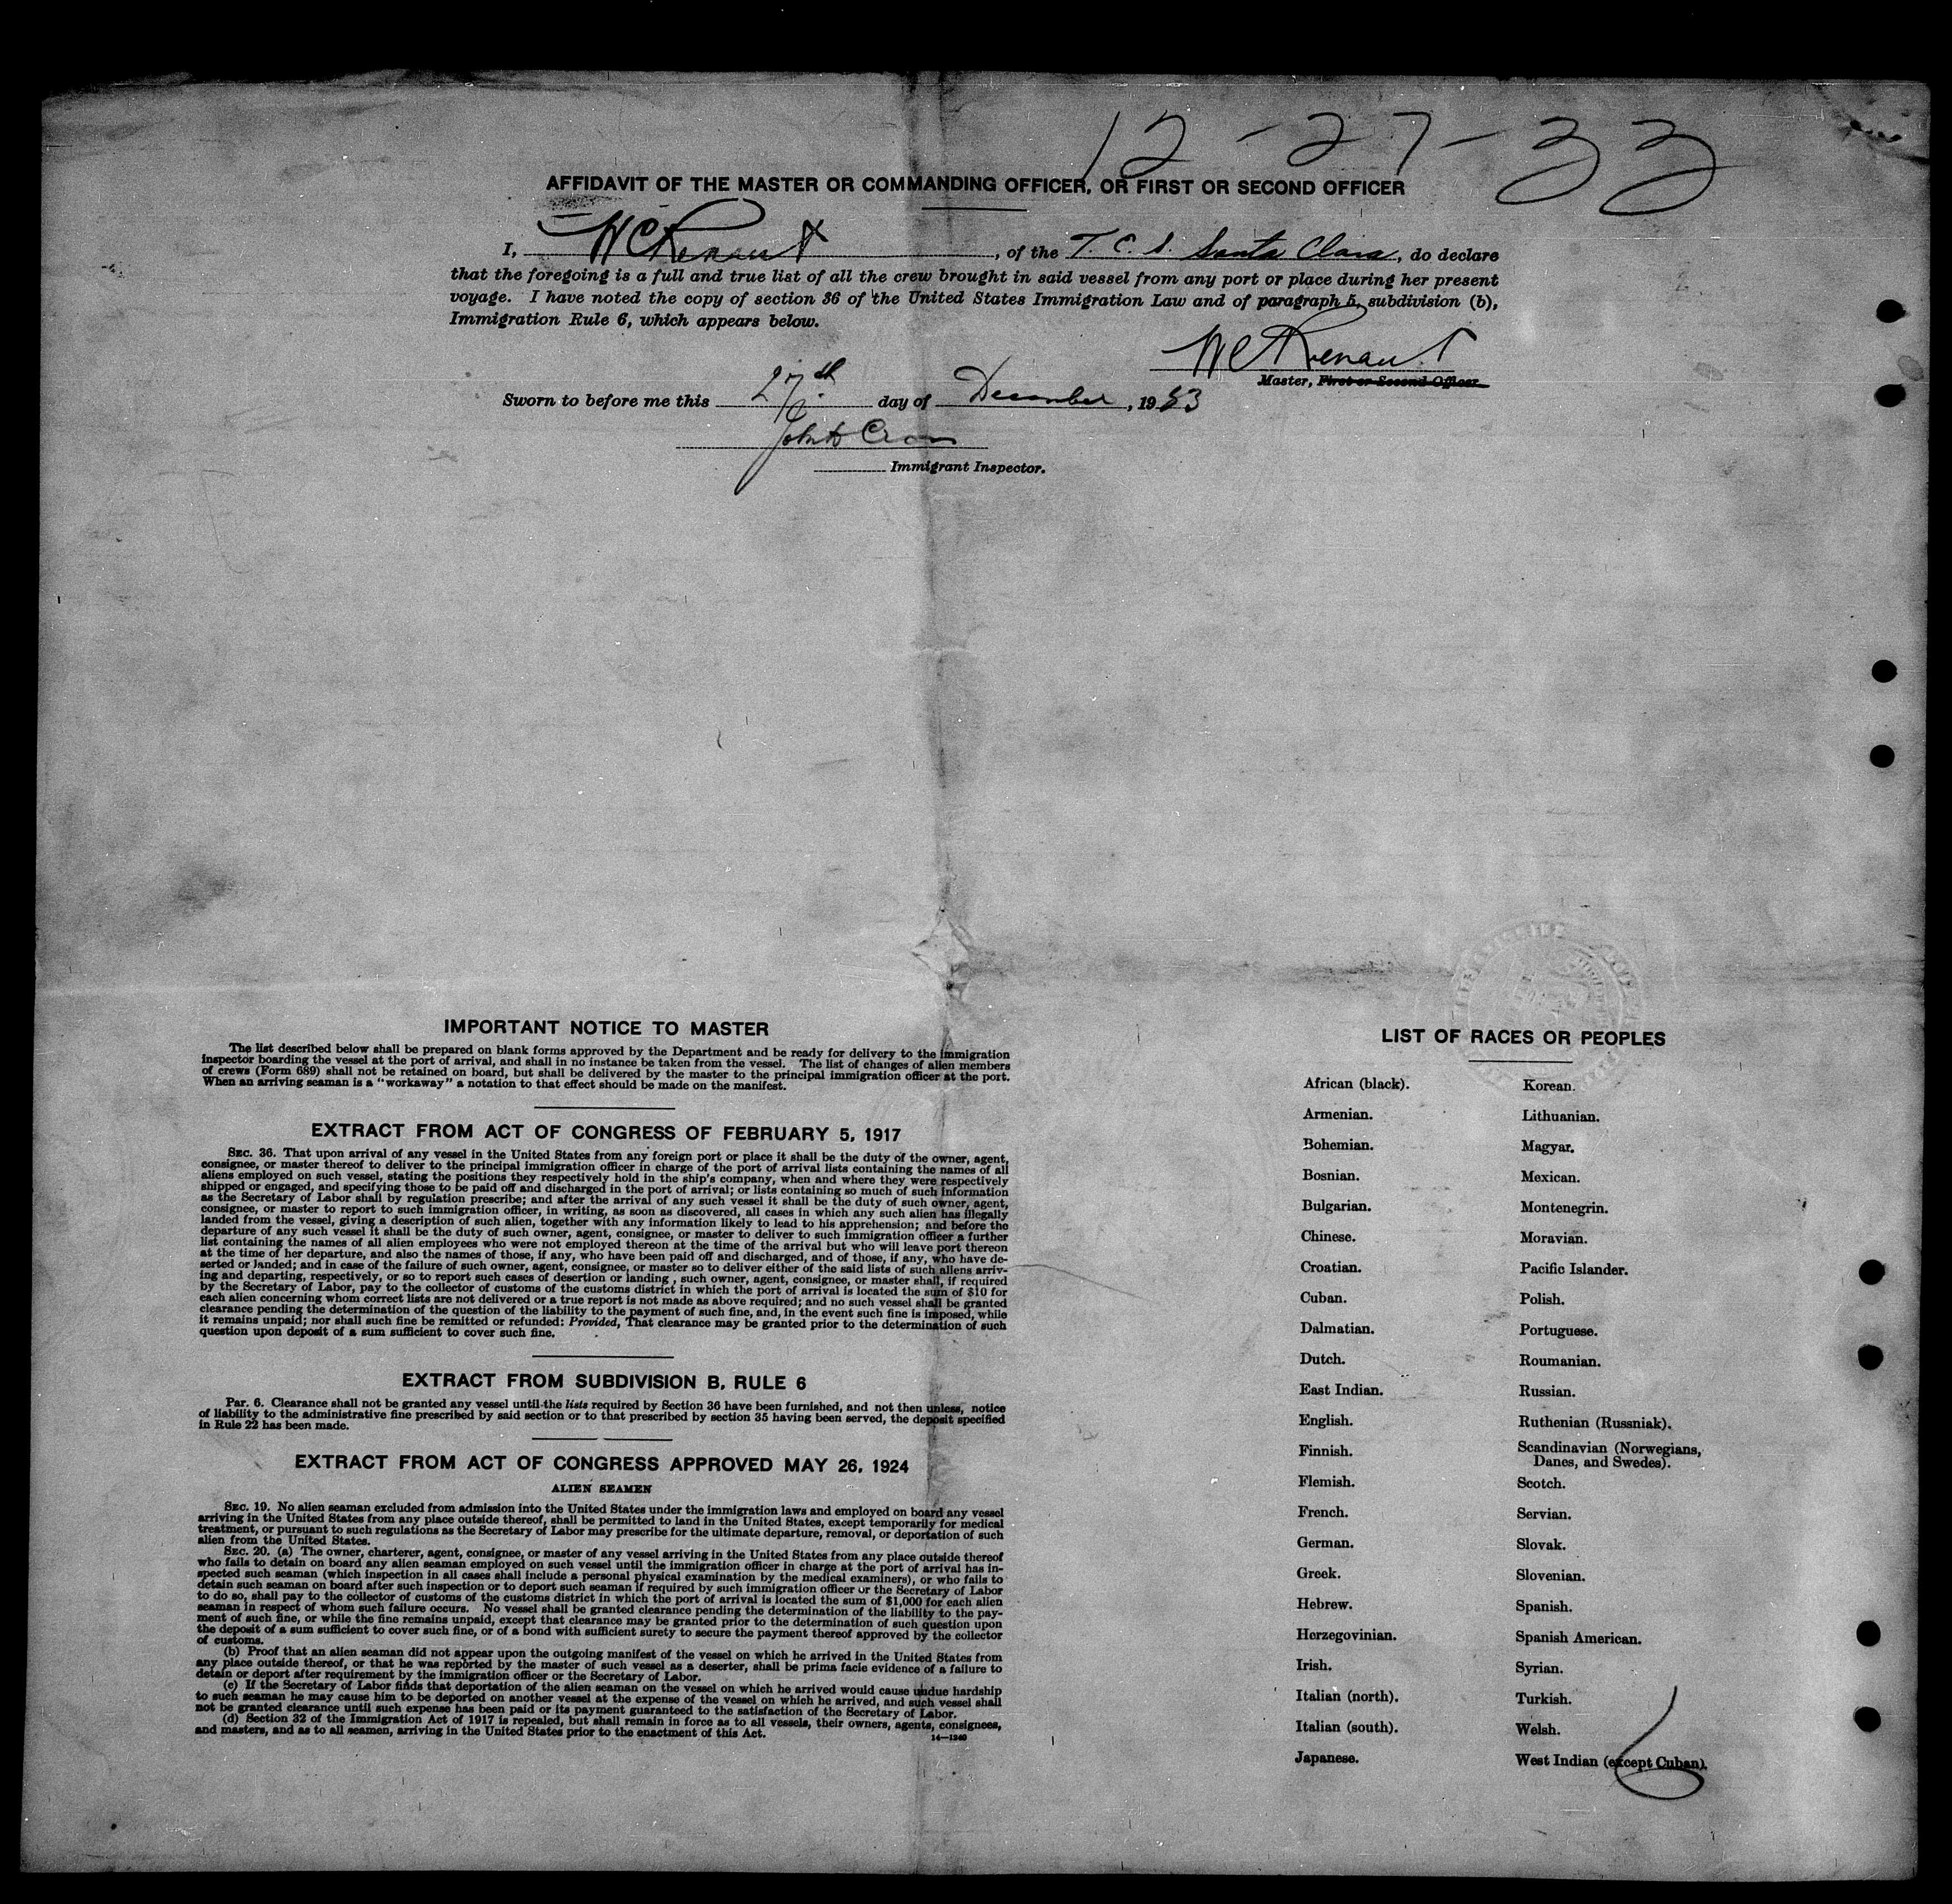 12-27-33
AFFIDAVIT OF THE MASTER OR COMMANDING OFFICER, OR FIRST OR SECOND OFFICER
I, W C Renaut, of the T. E. S. Santa Clara, do declare
that the foregoing is a full and true list of all the crew brought in said vessel from any port or place during her present
voyage. I have noted the copy of section 36 of the United States Immigration Law and of paragraph 5, subdivision (b),
Immigration Rule 6, which appears below.
W C Renaut
Master, First or Second Officer.
Sworn to before me this 27th day of December, 1933
John
Immigrant Inspector.
IMPORTANT NOTICE TO MASTER
The list described below shall be prepared on blank forms approved by the Department and be ready for delivery to the immigration
inspector boarding the vessel at the port of arrival, and shall in no instance be taken from the vessel. The list of changes of alien members
of crews (Form 689) shall not be retained on board, but shall be delivered by the master to the principal immigration officer at the port.
When an arriving seaman is a "workaway" a notation to that effect should be made on the manifest.
EXTRACT FROM ACT OF CONGRESS OF FEBRUARY 5, 1917
SEC. 36. That upon arrival of any vessel in the United States from any foreign port or place it shall be the duty of the owner, agent,
consignee, or master thereof to deliver to the principal immigration officer in charge of the port of arrival lists containing the names of all
aliens employed on such vessel, stating the positions they respectively hold in the ship's company, when and where they were respectively
shipped or engaged, and specifying those to be paid off and discharged in the port of arrival; or lists containing so much of such information
as the Secretary of Labor shall by regulation prescribe; and after the arrival of any such vessel it shall be the duty of such owner, agent,
consignee, or master to report to such immigration officer, in writing, as soon as discovered, all cases in which any such alien has illegally
landed from the vessel, giving a description of such alien, together with any information likely to lead to his apprehension; and before the
departure of any such vessel it shall be the duty of such owner, agent, consignee, or master to deliver to such immigration officer a further
list containing the names of all alien employees who were not employed thereon at the time of the arrival but who will leave port thereon
at the time of her departure, and also the names of those, if any, who have been paid off and discharged, and of those, if any, who have de-
serted or landed; and in case of the failure of such owner, agent, consignee, or master so to deliver either of the said lists of such aliens arriv-
ing and departing, respectively, or so to report such cases of desertion or landing , such owner, agent, consignee, or master shall, if required
by the Secretary of Labor, pay to the collector of customs of the customs district in which the port of arrival is located the sum of $10 for
each alien concerning whom correct lists are not delivered or a true report is not made as above required; and no such vessel shall be granted
clearance pending the determination of the question of the liability to the payment of such fine, and, in the event such fine is imposed, while
it remains unpaid; nor shall such fine be remitted or refunded: Provided, That clearance may be granted prior to the determination of such
question upon deposit of a sum sufficient to cover such fine.
EXTRACT FROM SUBDIVISION B, RULE 6
Par. 6. Clearance shall not be granted any vessel until the lists required by Section 36 have been furnished, and not then unless, notice
of liability to the administrative fine prescribed by said section or to that prescribed by section 35 having been served, the deposit specified
in Rule 22 has been made.
EXTRACT FROM ACT OF CONGRESS APPROVED MAY 26, 1924
ALIEN SEAMEN
SEC. 19. No alien seaman excluded from admission into the United States under the immigration laws and employed on board any vessel
arriving in the United States from any place outside thereof, shall be permitted to land in the United States, except temporarily for medical
treatment, or pursuant to such regulations as the Secretary of Labor may prescribe for the ultimate departure, removal, or deportation of such
alien from the United States.
SEC. 20. (a) The owner, charterer, agent, consignee, or master of any vessel arriving in the United States from any place outside thereof
who fails to detain on board any alien seaman employed on such vessel until the immigration officer in charge at the port of arrival has in-
spected such seaman (which inspection in all cases shall include a personal physical examination by the medical examiners), or who fails to
detain such seaman on board after such inspection or to deport such seaman if required by such immigration officer or the Secretary of Labor
to do so, shall pay to the collector of customs of the customs district in which the port of arrival is located the sum of $1,000 for each alien
seaman in respect of whom such failure occurs. No vessel shall be granted clearance pending the determination of the liability to the pay-
ment of such fine, or while the fine remains unpaid, except that clearance may be granted prior to the determination of such question upon
the deposit of a sum sufficient to cover such fine, or of a bond with sufficient surety to secure the payment thereof approved by the collector
of customs.
(b) Proof that an alien seaman did not appear upon the outgoing manifest of the vessel on which he arrived in the United States from
any place outside thereof, or that he was reported by the master of such vessel as a deserter, shall be prima facie evidence of a failure to
detain or deport after requirement by the immigration officer or the Secretary of Labor.
(c) If the Secretary of Labor finds that deportation of the alien seaman on the vessel on which he arrived would cause undue hardship
to such seaman he may cause him to be deported on another vessel at the expense of the vessel on which he arrived, and such vessel shall
not be granted clearance until such expense has been paid or its payment guaranteed to the satisfaction of the Secretary of Labor.
(d) Section 32 of the Immigration Act of 1917 is repealed, but shall remain in force as to all vessels, their owners, agents, consignees,
and masters, and as to all seamen, arriving in the United States prior to the enactment of this Act.
14—1240
LIST OF RACES OR PEOPLES
African (black).
Armenian.
Bohemian.
Bosnian.
Bulgarian.
Chinese.
Croatian.
Cuban.
Dalmatian.
Dutch.
East Indian.
English.
Finnish.
Flemish.
French.
German.
Greek.
Hebrew.
Herzegovinian.
Irish.
Italian (north).
Italian (south).
Japanese.
Korean.
Lithuanian.
Magyar.
Mexican.
Montenegrin.
Moravian.
Pacific Islander.
Polish.
Portuguese.
Roumanian.
Russian.
Ruthenian (Russniak).
Scandinavian (Norwegians,
Danes, and Swedes).
Scotch.
Servian.
Slovak.
Slovenian.
Spanish.
Spanish American.
Syrian.
Turkish.
Welsh.
West Indian (except Cuban).
6